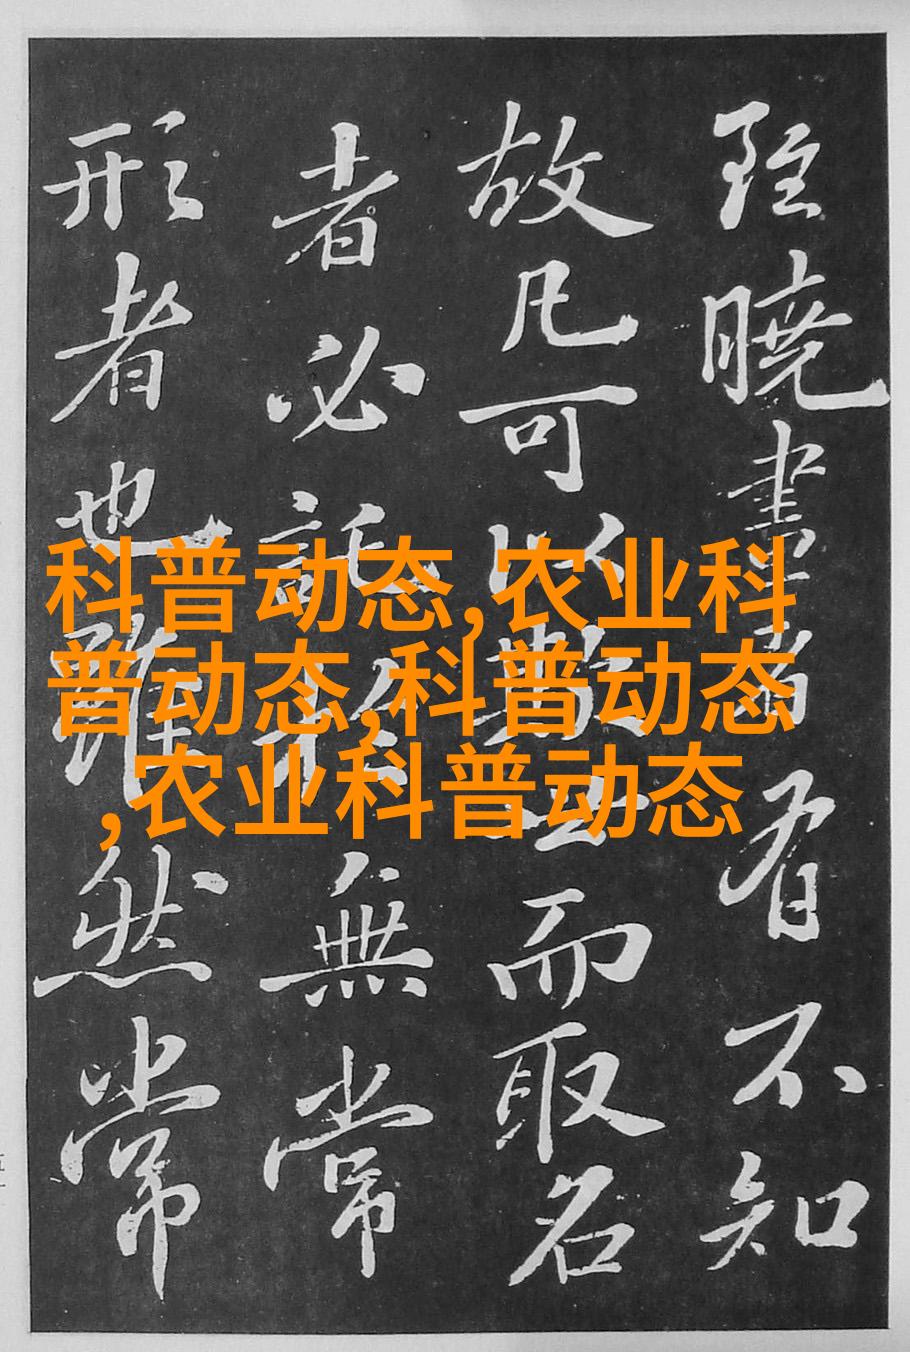 雖曉畫者有不知
故凡可以欺世而取名
者必託於無常
形者也雖然常
科普动态,农业科
普动态,科普动态
,农业科普动态